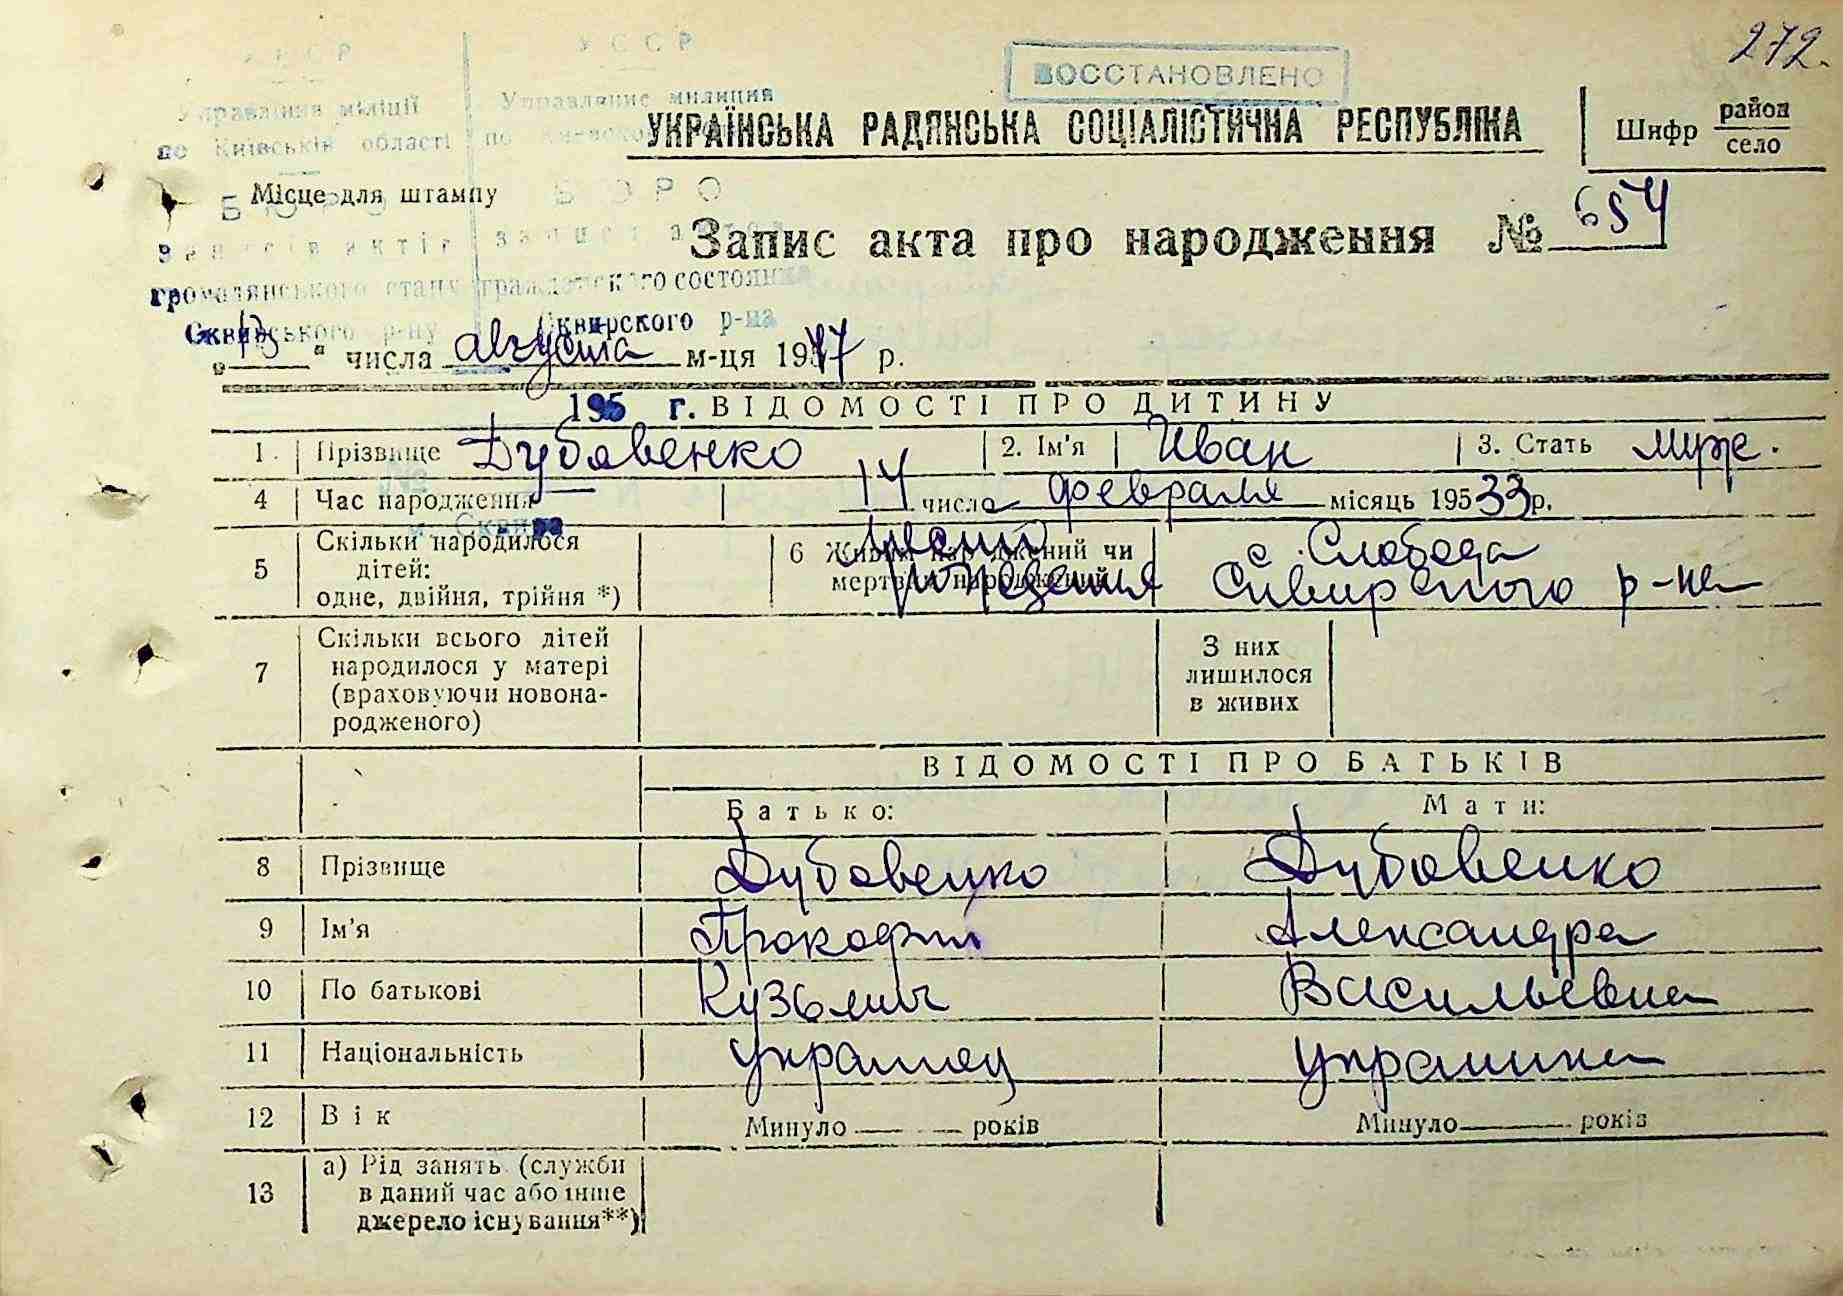 272.
УССР
УССР
ВОССТАНОВЛЕНО
Управління міліції
Управление милиции
УКРАЇНСЬКА РАДЯНСЬКА СОЦІАЛІСТИЧНА РЕСПУБЛІКА
Шифр район
село
по Київській області
по Киевской
Місце для штампу
БЮРО
БЮРО
записів актів
записи актов
Запис акта про народження № 654
громадянського стану
гражданского состояния
Сквирського р-ну
Сквирского р-на
„13“ числа августа м-ця 1947 р.
195 г. ВІДОМОСТІ ПРО ДИТИНУ
1. Прізвище Дубовенко 2. Ім'я Иван 3. Стать муж.
4 Час народження 14 числа февраля місяць 195 33 р.
№
м. Сквира
5 Скільки народилося дітей: одне, двійня, трійня *)
6 Живим народжений чи мертвим народжений
рождения с. Слобода
Сквирского р-на
7 Скільки всього дітей народилося у матері (враховуючи новонародженого)
З них лишилося в живих
ВІДОМОСТІ ПРО БАТЬКІВ
Батько: Мати:
8 Прізвище Дубовенко Дубовенко
9 Ім'я Прокофий Александра
10 По батькові Кузьмич Васильевна
11 Національність украинец украинка
12 Вік Минуло років Минуло років
13 а) Рід занять (служби
в даний час або інше
джерело існування**)